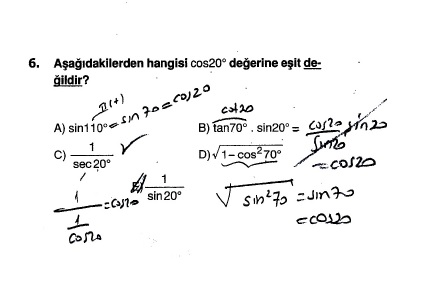 6. Aşağıdakilerden hangisi cos20° değerine eşit de-
ğildir?
II(+)
A) sin110° = sin70 = cos20
cot20
B) tan70° . sin20° = cos20/sin20 sin20
= cos20
C) 1/sec20°
D) √1−cos²70°
1/(1/cos20) = cos20
E) 1/sin20°
√sin²70 = sin70
= cos20